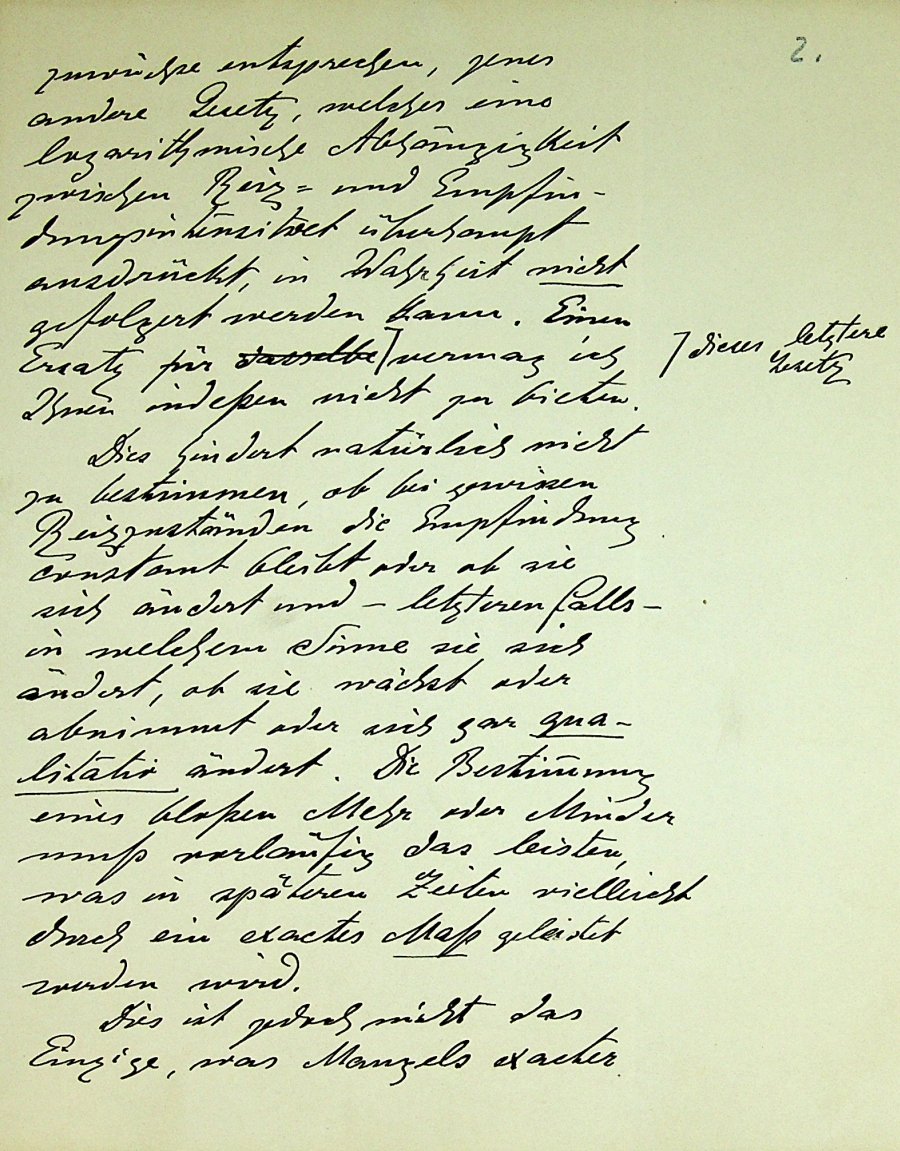 2.
zuwüchse entsprechen, jenes
andere Gesetz, welches eine
logarithmische Abhängigkeit
zwischen Reiz= und Empfin-
dungsintensitaet überhaupt
ausdrückt, in Wahrheit nicht
gefolgert werden kann. Einen
Ersatz für dasselbe] vermag ich
] dieses letztere
Gesetz
Ihnen indeßen nicht zu bieten.
Dies hindert natürlich nicht
zu bestimmen, ob bei gewissen
Reizzuständen die Empfindung
constant bleibt oder ob sie
sich ändert und – letzteren Falls –
in welchem Sinne sie sich
ändert, ob sie wächst oder
abnimmt oder sich gar qua-
litativ ändert. Die Bestim̄ung
eines bloßen Mehr oder Minder
muß vorläufig das leisten,
was in späteren Zeiten vielleicht
durch ein exactes Maß geleistet
werden wird.
Dies ist jedoch nicht das
Einzige, was Mangels exacter